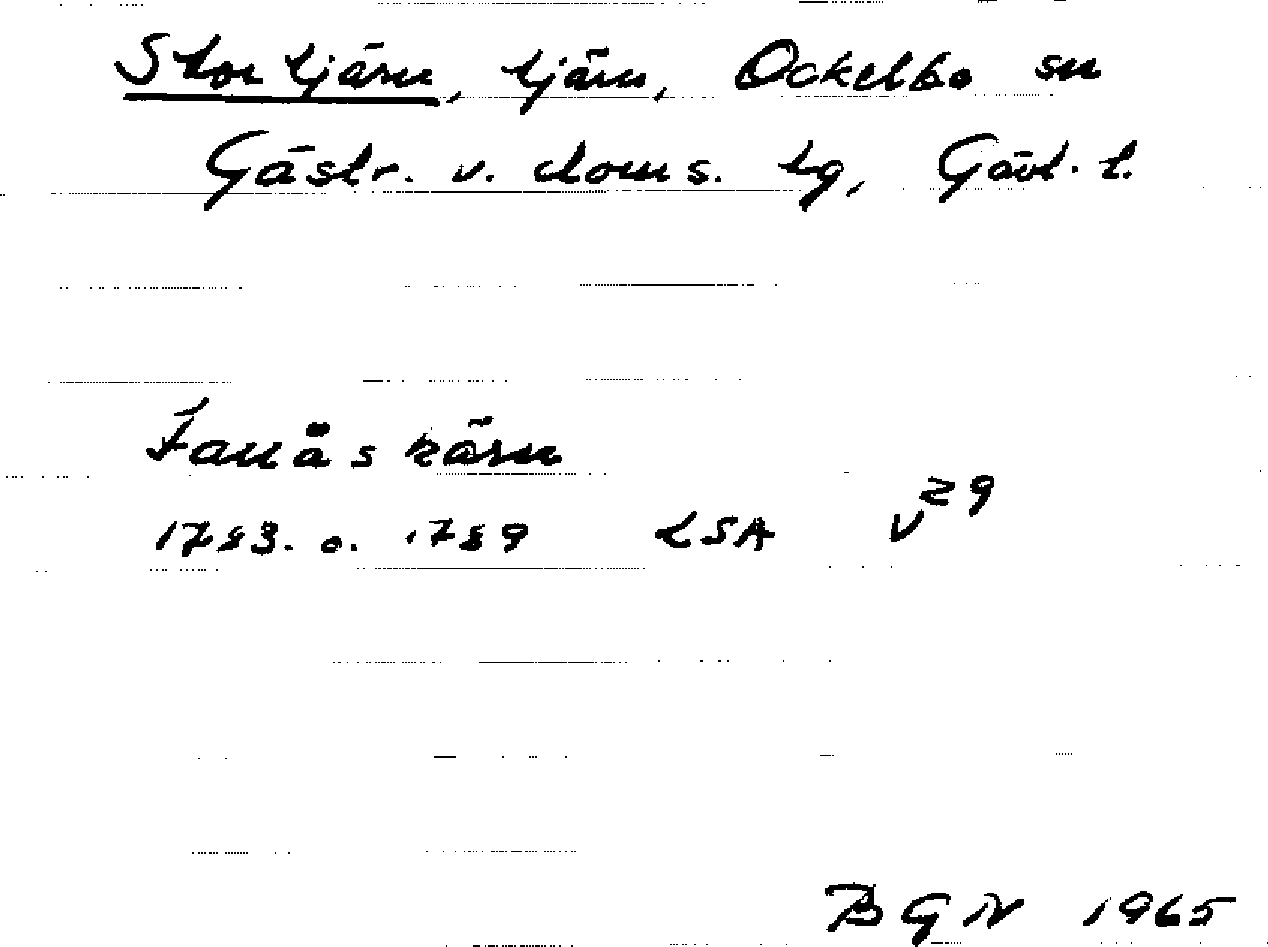 Stortjärn, tjärn, Ockelbo sn
Gästr. v. doms. tg, Gävl. l.
Janås kärn
1783. o. 1789 LSA v29
BGN 1965